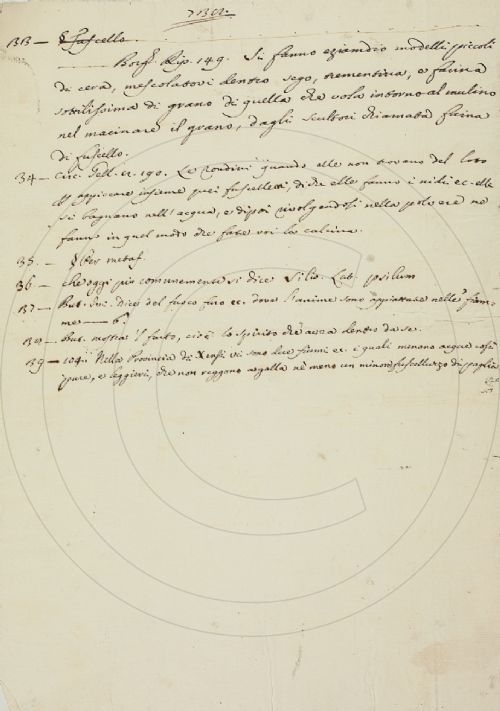 313 — § Fuscello.
Borgh. Rip. 149. Si fanno eziandio modelli piccoli
di cera, mescolatovi dentro sego, trementina, e farina
sottilissima di grano di quella che vola intorno al mulino
nel macinare il grano, dagli scultori chiamata farina
di fuscello.
34 — Circ. Gell. 190. Le rondini quando elle non trovano del loto
appiccare insieme quei fuscelletti, di che elle fanno i nidi ec. elle
si bagnano nell'acqua, e dipoi rivolgendosi nella polvere ne
fanno in quel modo che fate voi la calcina.
35. — § Per metaf.
36 — che oggi più comunemente si dice Silio. Lat. psilium
37 — But. Dice del fuoco furo ec. dove l'anime sono appiattate nelle fiam-
me — 6.
38. — But. mostra 'l furto, cioè lo spirito che avea dentro da se.
39 — 104. Nella Provincia di Xensi vi sono dice fiumi ec. i quali menono acque così
pure, e leggieri, che non reggono a galla nè meno un minono fuscelluzzo di paglia